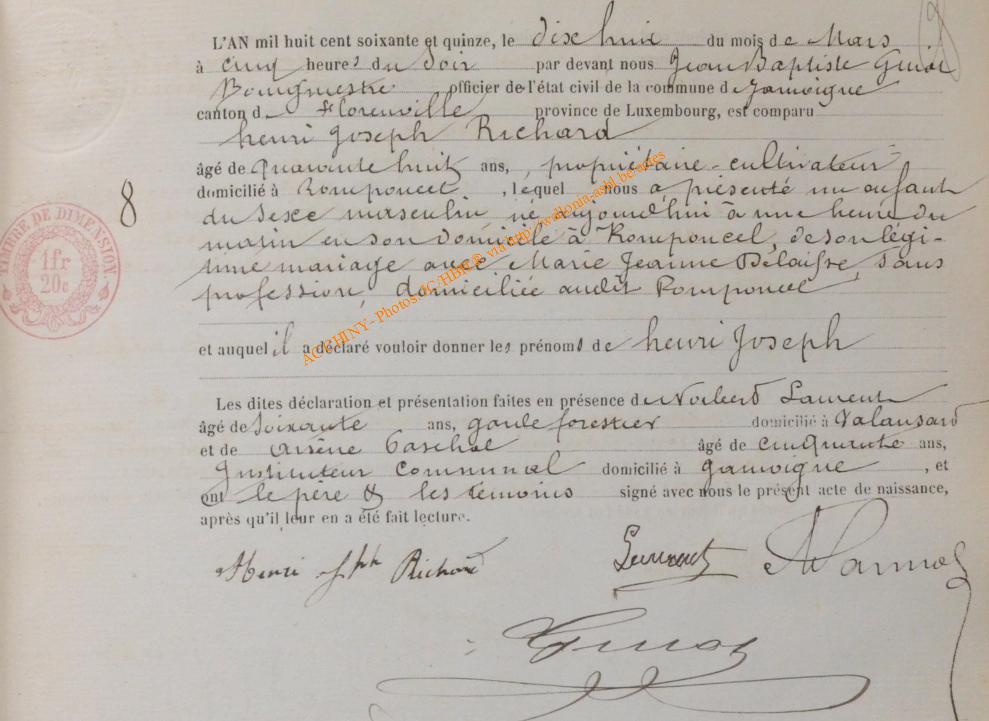 L'AN mil huit cent soixante et quinze, le dix huit du mois de Mars
à cinq heures du Soir par devant nous Jean Baptiste
Bourgmestre officier de l'état civil de la commune de Jamoigne
canton de Florenville province de Luxembourg, est comparu
henri Joseph Richard
âgé de Quarante huit ans, propriétaire-cultivateur
domicilié à Romponcel, lequel nous a présenté un enfant
du Sexe masculin, né aujourd'hui à une heure du
matin en son domicile à Romponcel, de son légi-
time mariage avec Marie Jeanne Delaisse, sans
profession, domiciliée audit Romponcel
et auquel il a déclaré vouloir donner les prénoms de henri Joseph
Les dites déclaration et présentation faites en présence de Norbert Laurent
âgé de Soixante ans, garde forestier domicilié à Valansart
et de Arsène âgé de cinquante ans,
Instituteur Communal domicilié à Jamoigne, et
ont le père & les témoins signé avec nous le présent acte de naissance,
après qu'il leur en a été fait lecture.
Henri Jph Richard Laurent
8
TIMBRE DE DIMENSION
1 fr
20c
AC CHINY - Photos JC/HBR® via http://wallonia-asbl.be/actes